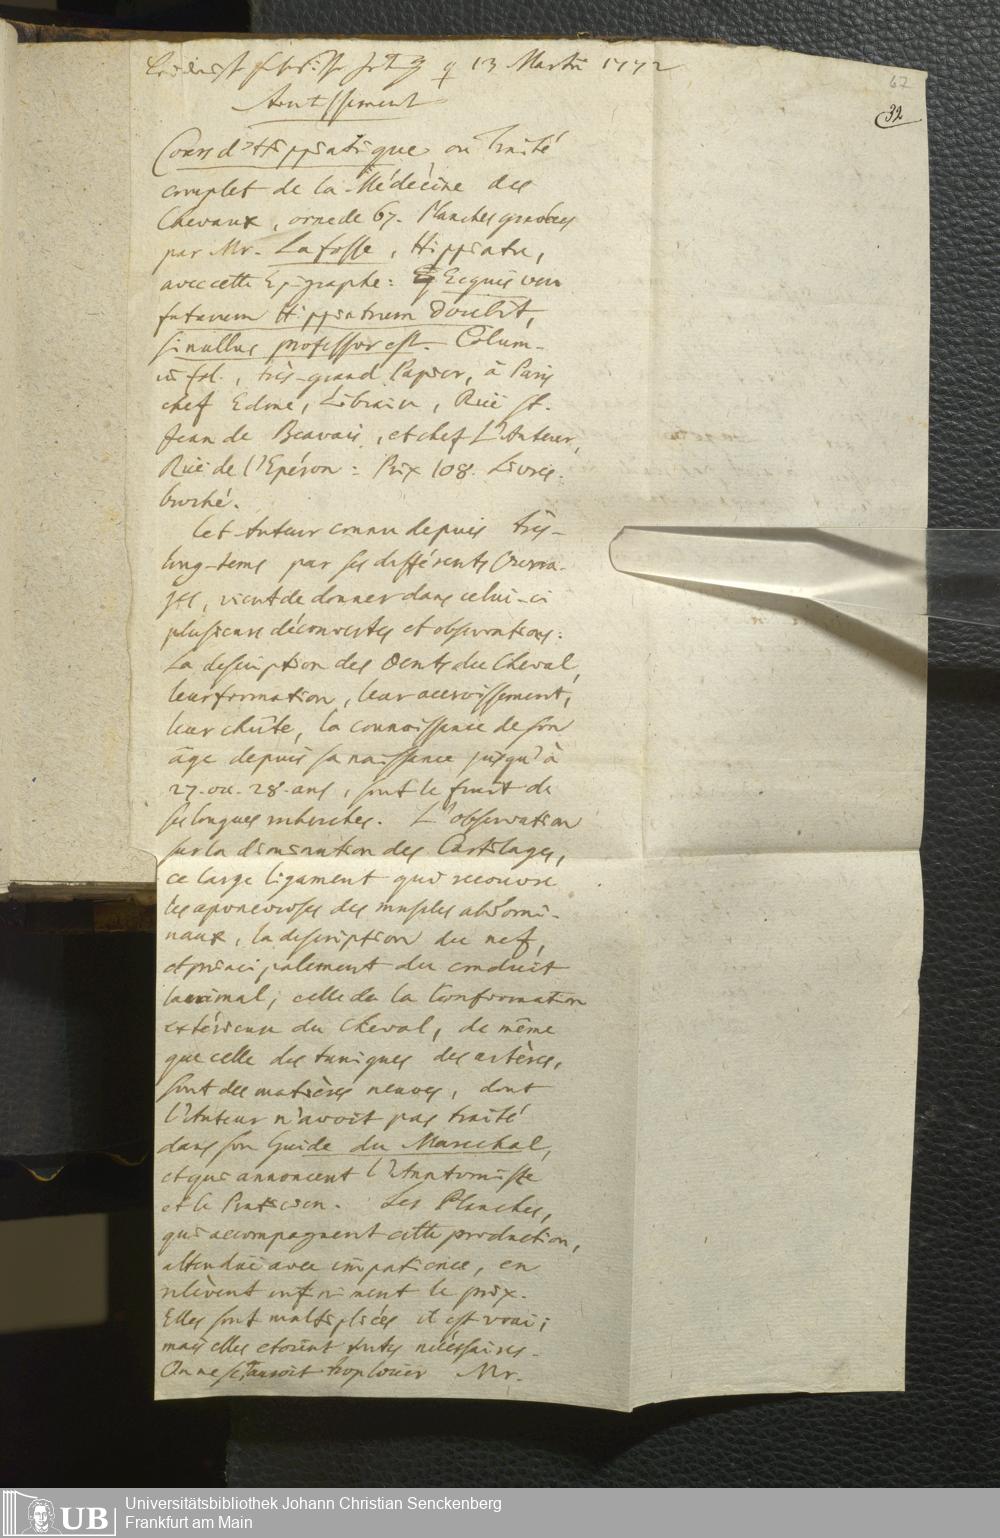 13 Martii 1772
67
32
Avertissement
Cours d'Hippiatrique ou Traité
complet de la Médécine des
Chevaux, orné de 67. Planches gravées
par Mr. Lafosse, Hippiatre,
avec cette Epigraphe: Ecquis
futurum Hippiatrum
si nullus professor est. Colum-
in fol., très-grand Papier, à Paris
chef Edme, Libraire, Rüe St.
Jean de Beavais, et chef L'Auteur,
Rüe de l'Epéron: Prix 108. Livres.
broché.
Cet Auteur connu depuis très-
long-tems par ses différents Ouvra-
ges, vient de donner dans celui-ci
plusieurs découvertes et observations:
La description des Dents du Cheval,
leur formation, leur accroissement,
leur chûte, la connoissance de son
âge depuis sa naissance jusqu'à
27. ou. 28. ans, sont le fruit de
ses longues recherches. L'observation
sur la diminution des Cartilages,
ce large ligament qui recouvre
les aponevroses des muscles abdomi-
naux, la description du nez,
et principalement du conduit
lacrimal; celle de la Conformation
extérieure du Cheval, de même
que celle des tuniques des artères,
sont des matières neuves, dont
l'Auteur n'avoit pas traité
dans son Guide du Marechal,
et qui annoncent l'Anatomiste
et le Praticien. Les Planches,
qui accompagnent cette production,
attendüe avec impatience, en
relèvent infiniment le prix.
Elles sont multipliées il est vrai;
mais elles etoient toutes nécéssaires.
On ne sçauroit trop loüer Mr.
UB
Universitätsbibliothek Johann Christian Senckenberg
Frankfurt am Main